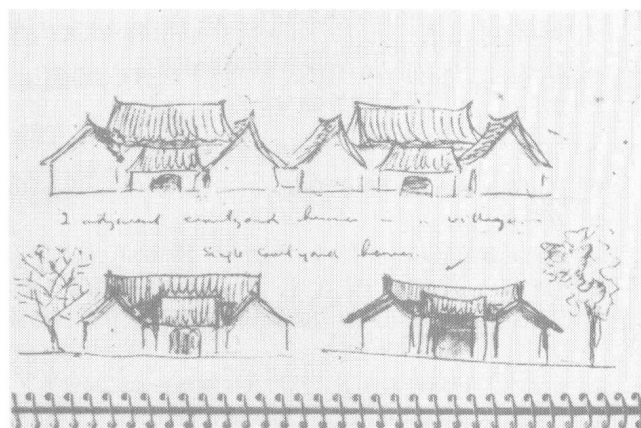 2 adjacent courtyard houses in a village
Single Courtyard houses